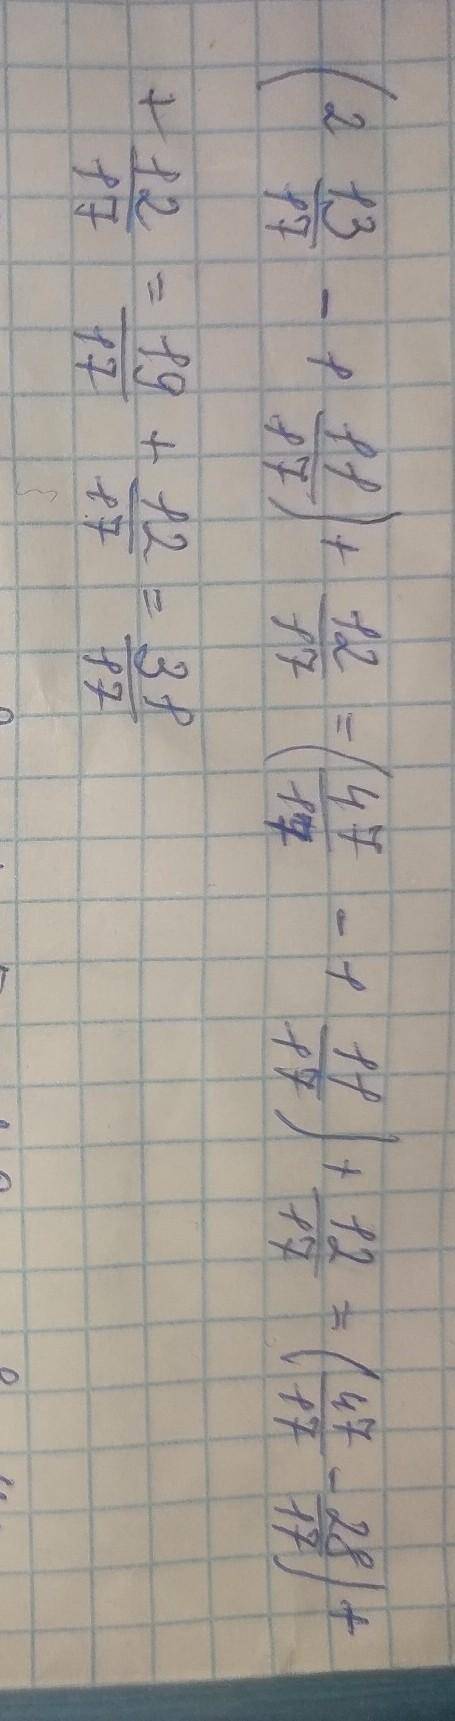 (2 13/17 - 1 11/17) + 12/17 = (47/17 - 1 11/17) + 12/17 = (47/17 - 28/17) +
+ 12/17 = 19/17 + 12/17 = 31/17